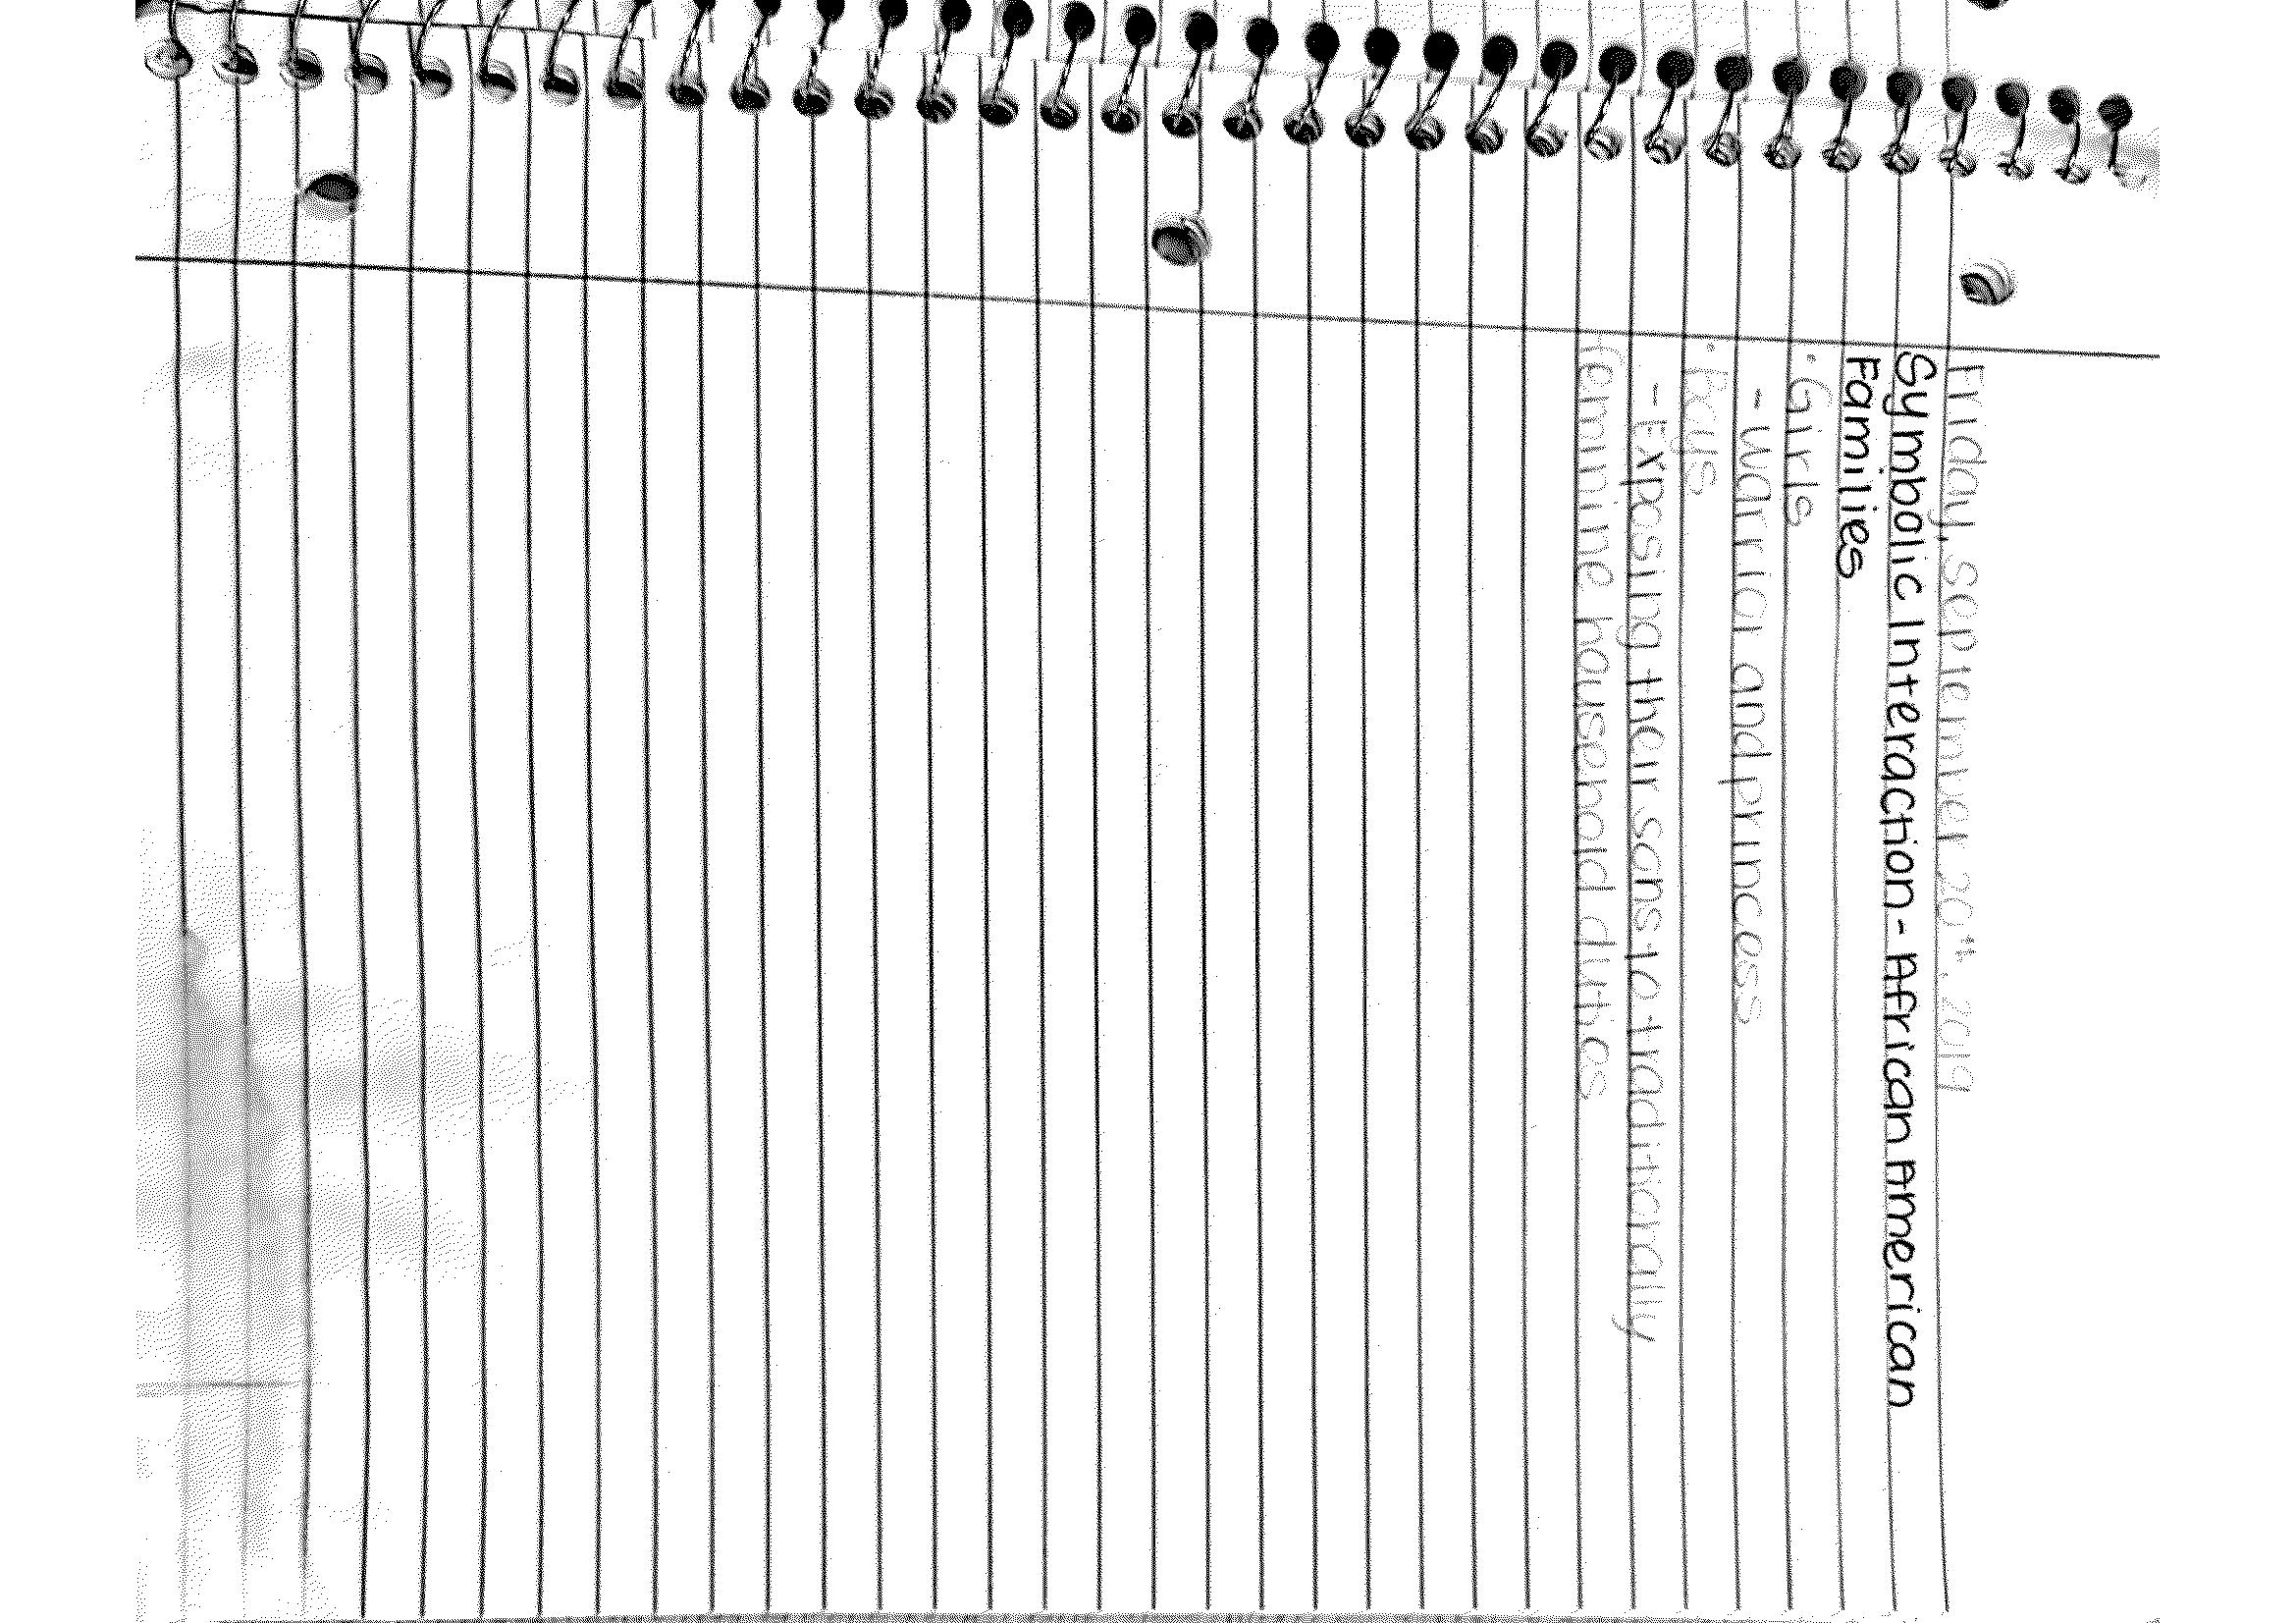 Friday, September 20th, 2019
Symbolic Interaction - African American
Families
• Girls
- Warrior and princess
• Boys
- Exposing their sons to traditionally
feminine household duties